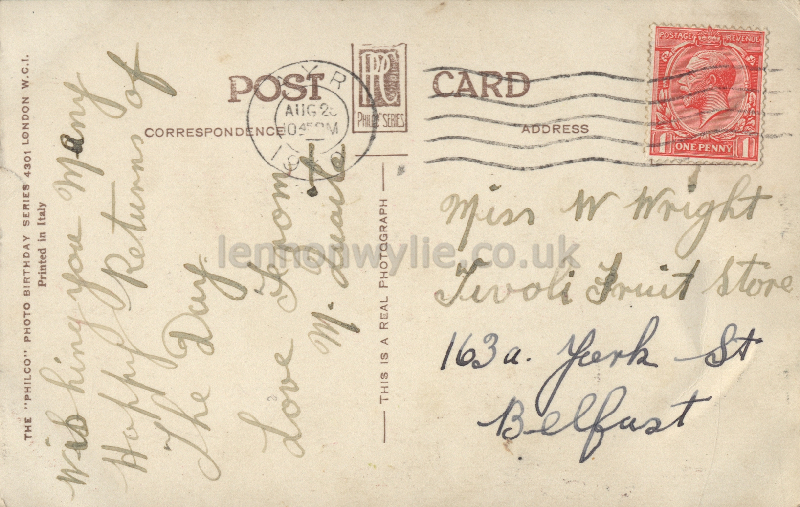 POST CARD
PRC
PHILCO SERIES
CORRESPONDENCE
ADDRESS
AYR
AUG 2
1045PM
19
POSTAGE REVENUE
1 ONE PENNY 1
THE "PHILCO" PHOTO BIRTHDAY SERIES 4301 LONDON W.C.1.
Printed in Italy
Wishing you Many
Happy Returns of
The Day.
Love From
M.
— THIS IS A REAL PHOTOGRAPH —
Miss W Wright
Tivoli Fruit Store
163a. York St
Belfast
lennonwylie.co.uk